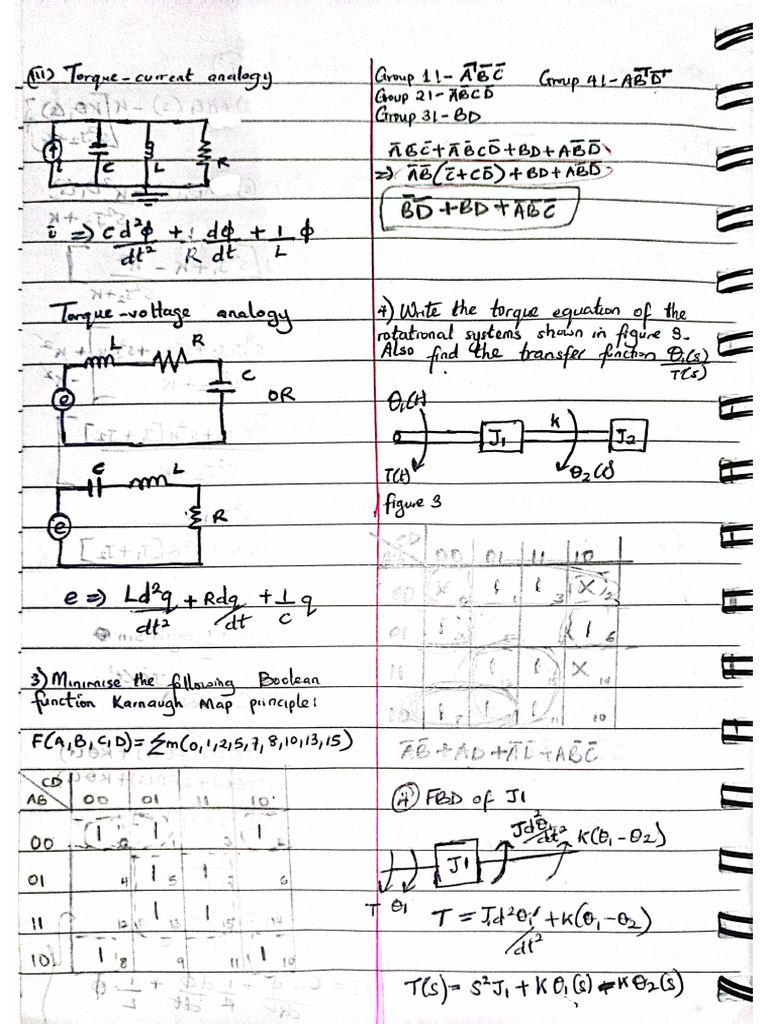 (iii) Torque-current analogy
i C L R
i => C d²φ/dt² + 1/R dφ/dt + 1/L φ
Torque-voltage analogy
L R
e C OR
C L
e R
e => Ld²q/dt² + Rdq/dt + 1/C q
3) Minimise the following Boolean
function Karnaugh Map principle:
F(A,B,C,D) = Σm(0,1,2,5,7,8,10,13,15)
CD
AB 00 01 11 10
00 1 0 1 1 3 1 2
01 4 1 5 1 7 6
11 12 1 13 1 15 14
10 1 8 9 11 1 10
Group 1:- A̅B̅C̅ Group 4:- AB̅D̅
Group 2:- A̅B̅CD̅
Group 3:- BD
A̅B̅C̅ + A̅B̅CD̅ + BD + AB̅D̅
=> A̅B̅(C̅ + CD̅) + BD + AB̅D̅
B̅D̅ + BD + A̅B̅C̅
4) Write the torque equation of the
rotational systems shown in figure 3.
Also find the transfer function θ₁(s)/T(s)
θ₁(t)
J₁ K J₂
T(t) θ₂(t)
figure 3
00 01 11 10
A̅B̅ + AD + A̅D̅ + AB̅C̅
4) FBD of J1
Jd²θ₁/dt² K(θ₁-θ₂)
J1
T θ₁
T = J₁d²θ₁/dt² + K(θ₁-θ₂)
T(s) = S²J₁ + Kθ₁(s) - Kθ₂(s)